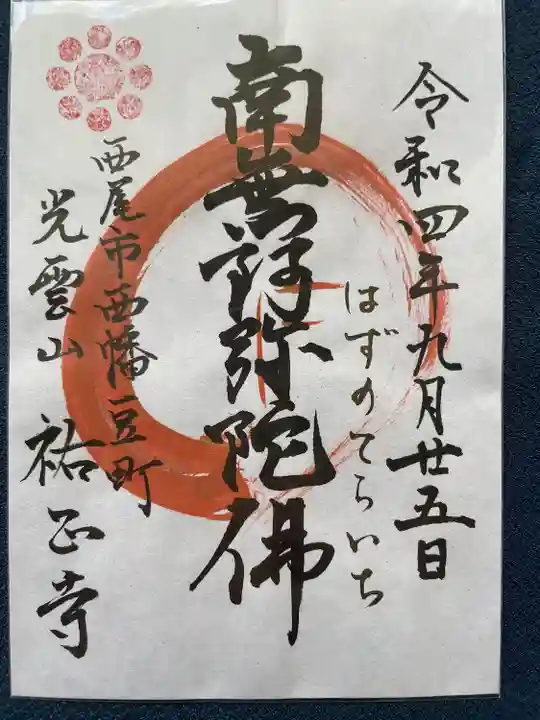 令和四年九月廿五日
はずのてらいち
南無阿弥陀佛
西尾市西幡豆町
光雲山 祐正寺